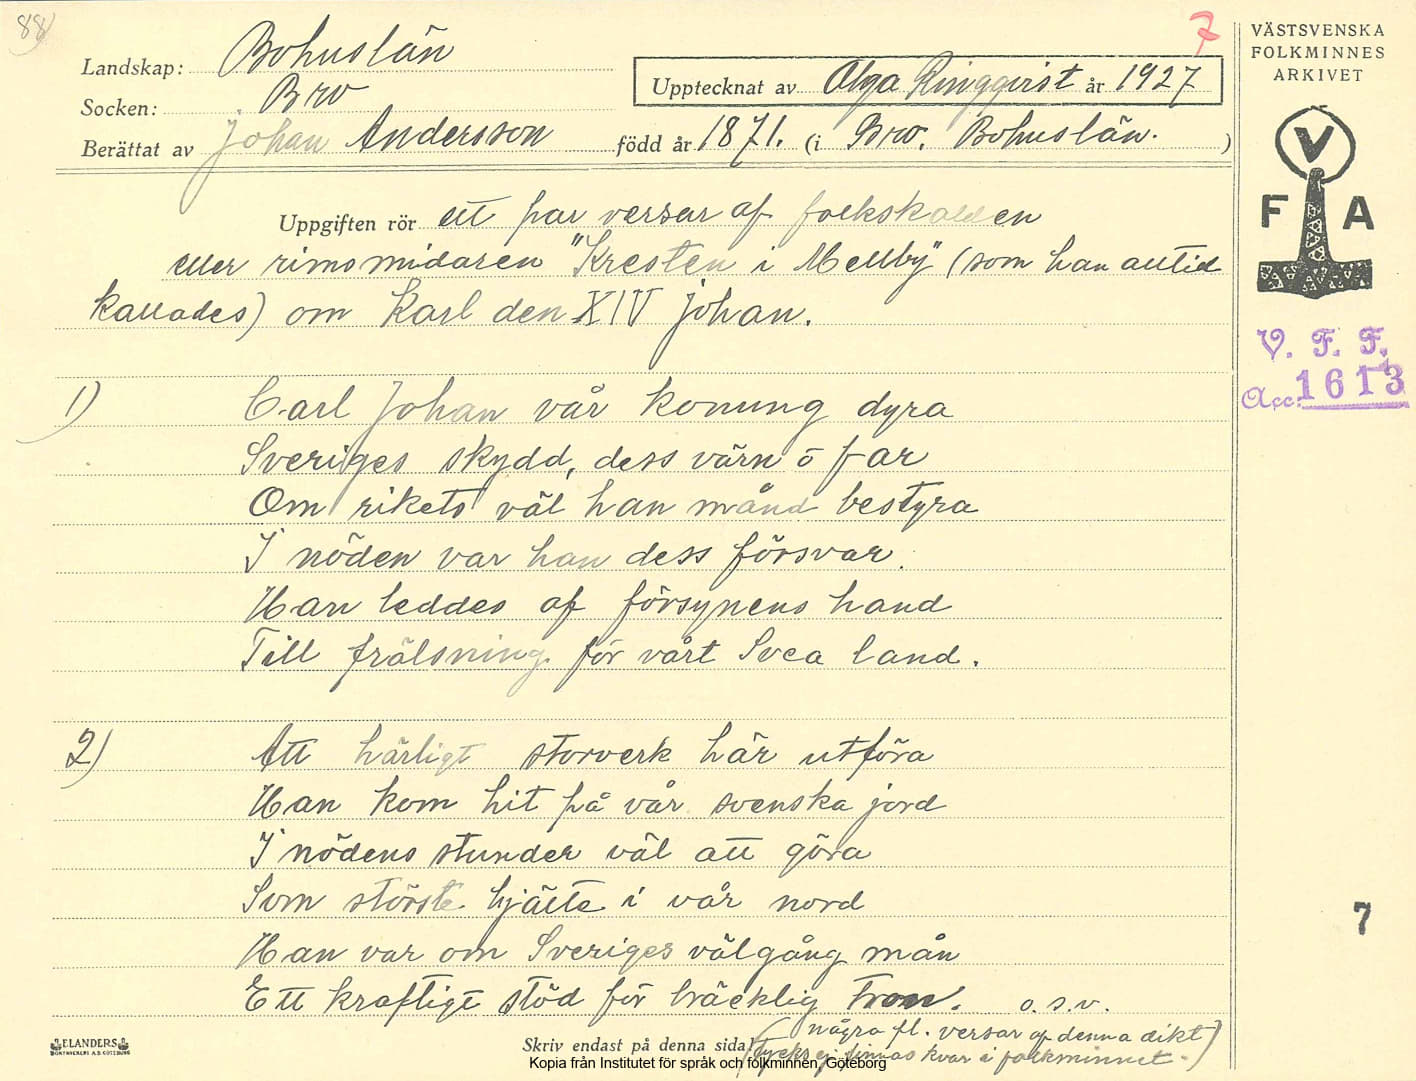 88
7
Landskap: Bohuslän
Socken: Bro
Upptecknat av Olga Ringqvist år 1927
Berättat av Johan Andersson född år 1871. (i Bro. Bohuslän.)
Uppgiften rör ett par versar af folkskalden
eller rimsmidaren "Kresten i Mellby" (som han alltid
kallades) om Karl den XIV Johan.
1) Carl Johan vår konung dyra
Sveriges skydd, dess värn o far
Om rikets väl han månd bestyra
I nöden var han dess försvar.
Han leddes af försynens hand
Till frälsning för vårt Svea land.
2) Att härligt storverk här utföra
Han kom hit på vår svenska jord
I nödens stunder väl att göra
Som störste hjälte i vår nord
Han var om Sveriges välgång mån
Ett kraftigt stöd för bräcklig tron. o.s.v.
(några fl. versar af denna dikt
tycks ej finnas kvar i folkminnet.)
Skriv endast på denna sida!
ELANDERS
BOKTRYCKERI A.B. GÖTEBORG
Kopia från Institutet för språk och folkminnen, Göteborg
VÄSTSVENSKA
FOLKMINNES
ARKIVET
V
F A
V. F. F.
Acc. 1613
7